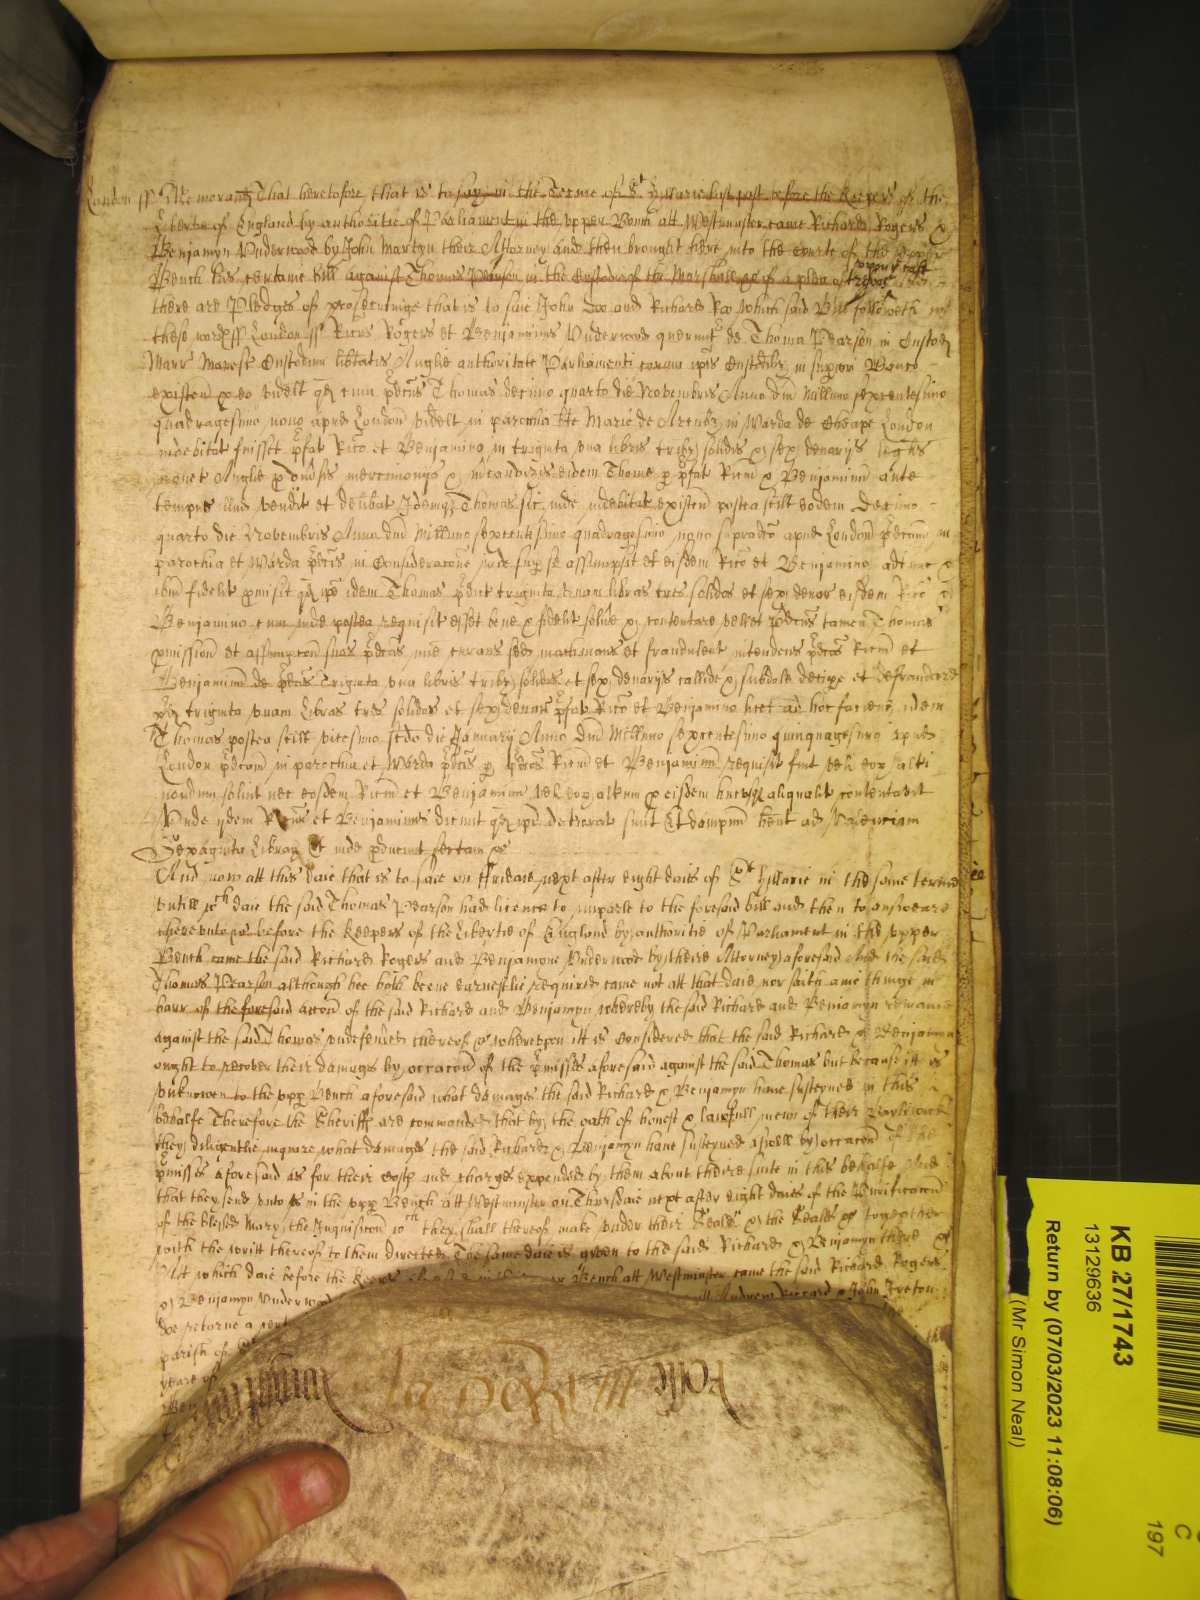 London ss Memorand That heretofore that is to say in the Terme of St Hyllarie last past before the Keepers of the
Libertie of England by authoritie of Parliament in the upper Bench att Westminster came Richard Rogers &
Benjamyn Underwood by John Martyn their Attorney and then brought here into the Courte of the upper
Bench his certaine bill against Thomas Pearson in the Custody of the Marshall &c of a plea of
there are Pledges of prosecutinge that is to saie John Doo and Richard Roo which said Bill followeth in
these words ss London ss Ricus Rogers et Benjaminus Underwood querunt de Thoma Pearson in Custod
Marr Maresc Custodum libertatis Anglie authoritate Parliamenti coram ipis Custodibz in supiori Banco
existen p eo videlt qd cum pdcus Thomas decimo quarto die Novembris Anno dni Millimo sexcentesimo
quadragesimo nono apud London videlt in parochia Ste Marie de Arcubz in Warda de Cheape London
indebitat fuisset pfat Rico et Benjamino in triginta una libris tribz solidis & sex denarijs legalis
monet Anglie p divsis mercimonijs & eidem Thome p pfat Ricm & Beniaminu ante
tempus illud vendit et delibat Idemqz Thomas sic inde indebitat existen postea scilt eodem decimo
quarto die Novembris Anno dni Millimo sexcentesimo quadragesimo nono supradco apud London pdcam in
parochia et Warda pdcis in Consideracone inde sup se assumpsit et eisdem Rico et Benjamino adtunc &
ibm fidelit pmisit qd ipe idem Thomas pdcas triginta & unam libras tres solidos et sex denar eisdem Rico &
Benjamino cum inde postea requisit esset bene & fidelit solve & contentare vellet pdcus tamen Thomas
pmission et assumpcon suas pdcas min curans sed machinans et fraudulent intendens pdcos Ricm et
Benjaminu de pdcis Triginta una libris tribz solidis et sex denarijs callide & subdole decipe et defraudare
pd triginta unam libras tres solidos et sex denar pfat Rico et Benjamino licet ad hoc faciend idem
Thomas postea scilt vicesimo scdo die January Anno dni Millimo sexcentesimo quinquagesimo apud
London pdcam in parochia et Warda pdcis p pdcos Ricm et Benjaminu requisit fuit vel eoz alti
nondum solvit nec eosdem Ricm et Benjamin vel eoz altum p eisdem hucusqz aliqualit contentavit
Unde ijdem Ricus et Benjaminus dicunt qd ipi deteriorat sunt Et dampnu hent ad Valenciam
Sexaginta Libraz Et inde pducunt sectam &c
And now att this daie that is to saie on Friday next after eight daies of St Hyllarie in the same terme
untill wch daie the said Thomas Pearson had licence to imparle to the foresaid bill and then to answeare
thereunto &c before the Keepers of the Libertie of England by authoritie of Parliament in the upper
Bench came the said Richard Rogers and Benjamyn Underwood by their Attorney aforesaid And the said
Thomas Pearson although hee hath beene earnestlie required came not att that daie nor saith anie thinge in
barr of the foresaid accon of the said Richard and Benjamyn whereby the said Richard and Beniamyn remaine
against the said Thomas undefended thereof &c whereupon itt is Considered that the said Richard & Beniamyn
ought to recover their damages by occacon of the pmisses aforesaid against the said Thomas but because itt is
unknowen to the upp Bench aforesaid what damages the said Richard & Benjamyn have susteyned in this
behalfe Therefore the Sheriffs are commanded that by the oath of honest & lawfull men of their Bayliwick
they diligentlie inquire what damages the said Richard & Benjamyn have susteyned aswell by occacon of the
pmisses aforesaid as for their costs and charges expended by them about theire suite in this behalfe And
that they send unto us in the upp Bench att Westminster on Thursdaie next after eight daies of the Purificacon
of the blessed Mary the Inquisicon wch they shall thereof make under their Seales & the Seales &c togeather
with the writt thereof to them directed The same daie is given to the said Richard & Benjamyn there &c
Att which daie before the Keeps Bench att Westminster came the said Richard Rogers
& Benjamyn Underwood Andrew Riccard & John Ireton
doe returne a
parish of
yeare of
Ben
KB 27/1743
13129636
Return by (07/03/2023 11:08:06)
(Mr Simon Neal)
C
197